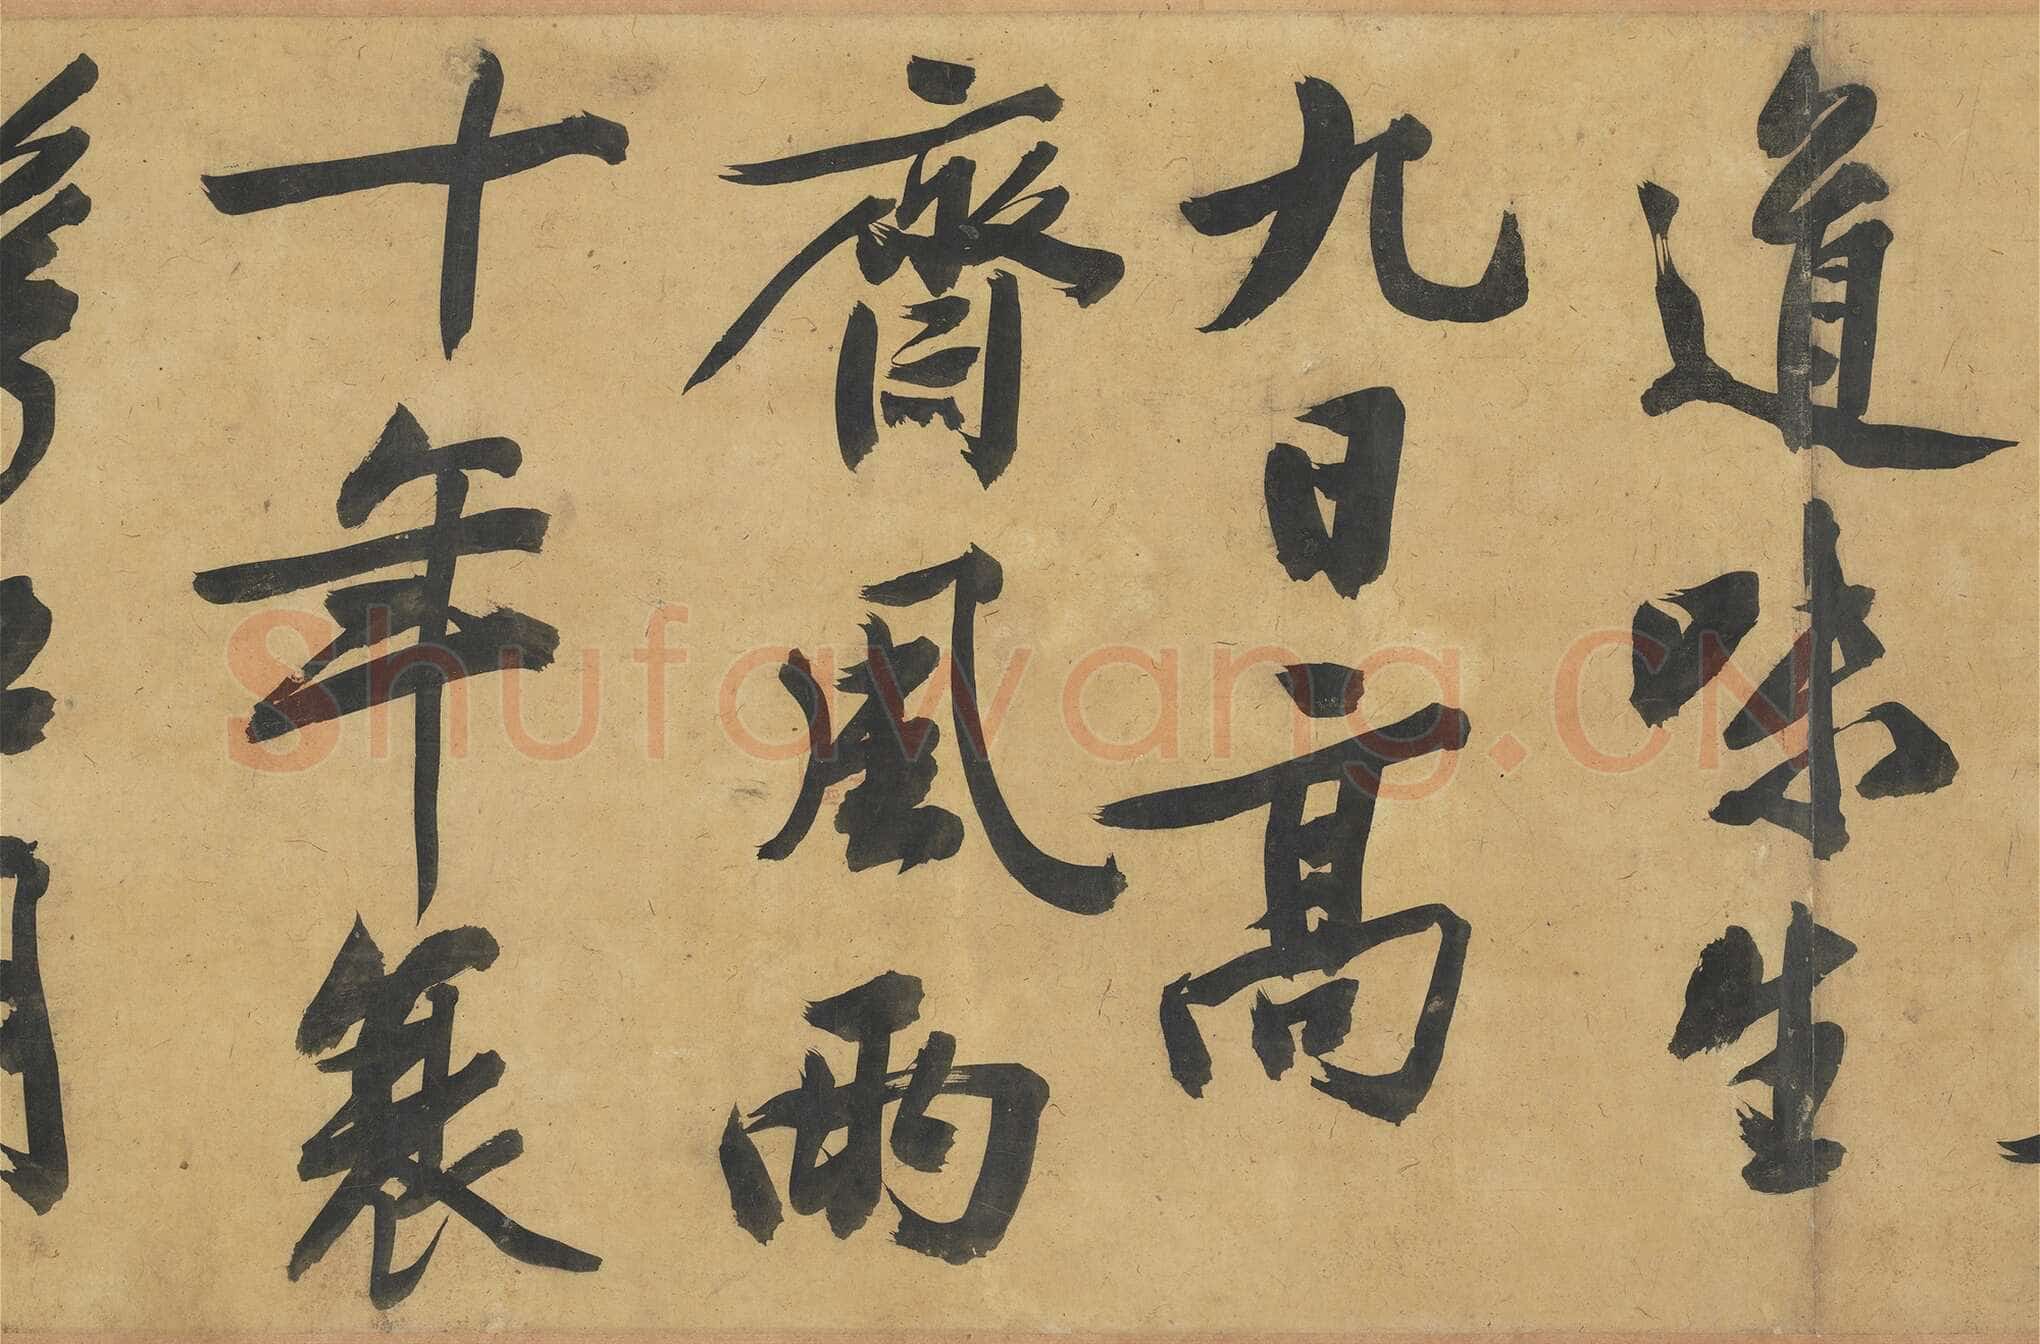 道味生
九日高
齊風雨
十年
Shufawang.CN